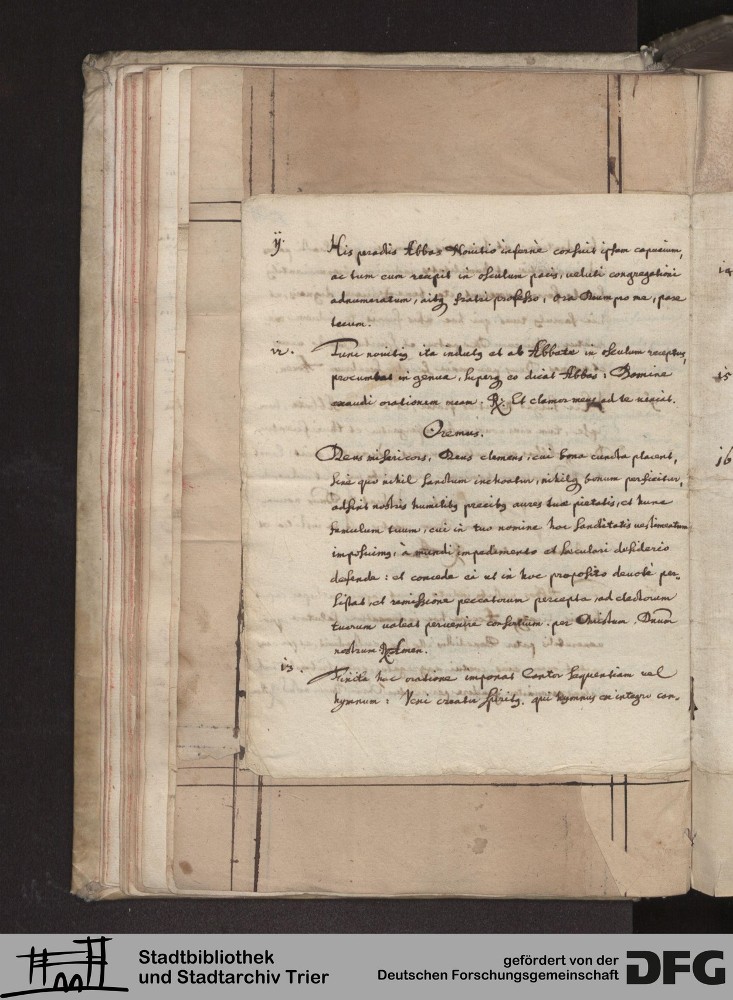 ÿ. His peractis Abbas Novitio infernè consuit ipsam capucium,
ac tum eum recipit in osculum pacis, veluti congregationi
adnumeratum, fratri professo, ora Deum pro me, pax
tecum.
12. Tunc novitiꝰ ita indutꝰ et ab Abbate in osculum receptꝰ,
procumbat in genua, superqꝫ eo dicat Abbas, Domine
exaudi orationem meam. ℟. Et clamor meus ad te veniat.
Oremus.
Deus misericors, Deus clemens, cui bona cuncta placent,
sine quo nihil sanctum inchoatur, nihilqꝫ bonum perficitur,
adsint nostris humilibꝰ precibꝰ aures tuæ pietatis, et hunc
famulum tuum, cui in tuo nomine hoc sanctitatis vestimentum
imposuimꝰ, à mundi impedimento et sæculari desiderio
defende: et concede ei ut in hoc proposito devotè per-
sistat, et remissione peccatorum percepta, ad electorum
tuorum valeat pervenire consortium. per Christum Dnum
nostrum ℟ Amen.
13. Finita hac oratione imponat Cantor sequentiam vel
hymnum: Veni creator spiritꝰ. qui hymnus ex integro can-
14
15
16
Stadtbibliothek
und Stadtarchiv Trier
gefördert von der
Deutschen Forschungsgemeinschaft
DFG